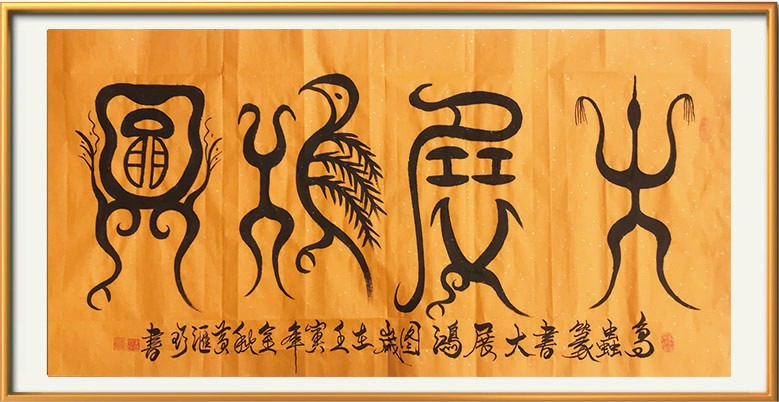 大展鴻圖
鳥蟲篆書大展鴻图歲在壬寅年金秋黄滙書